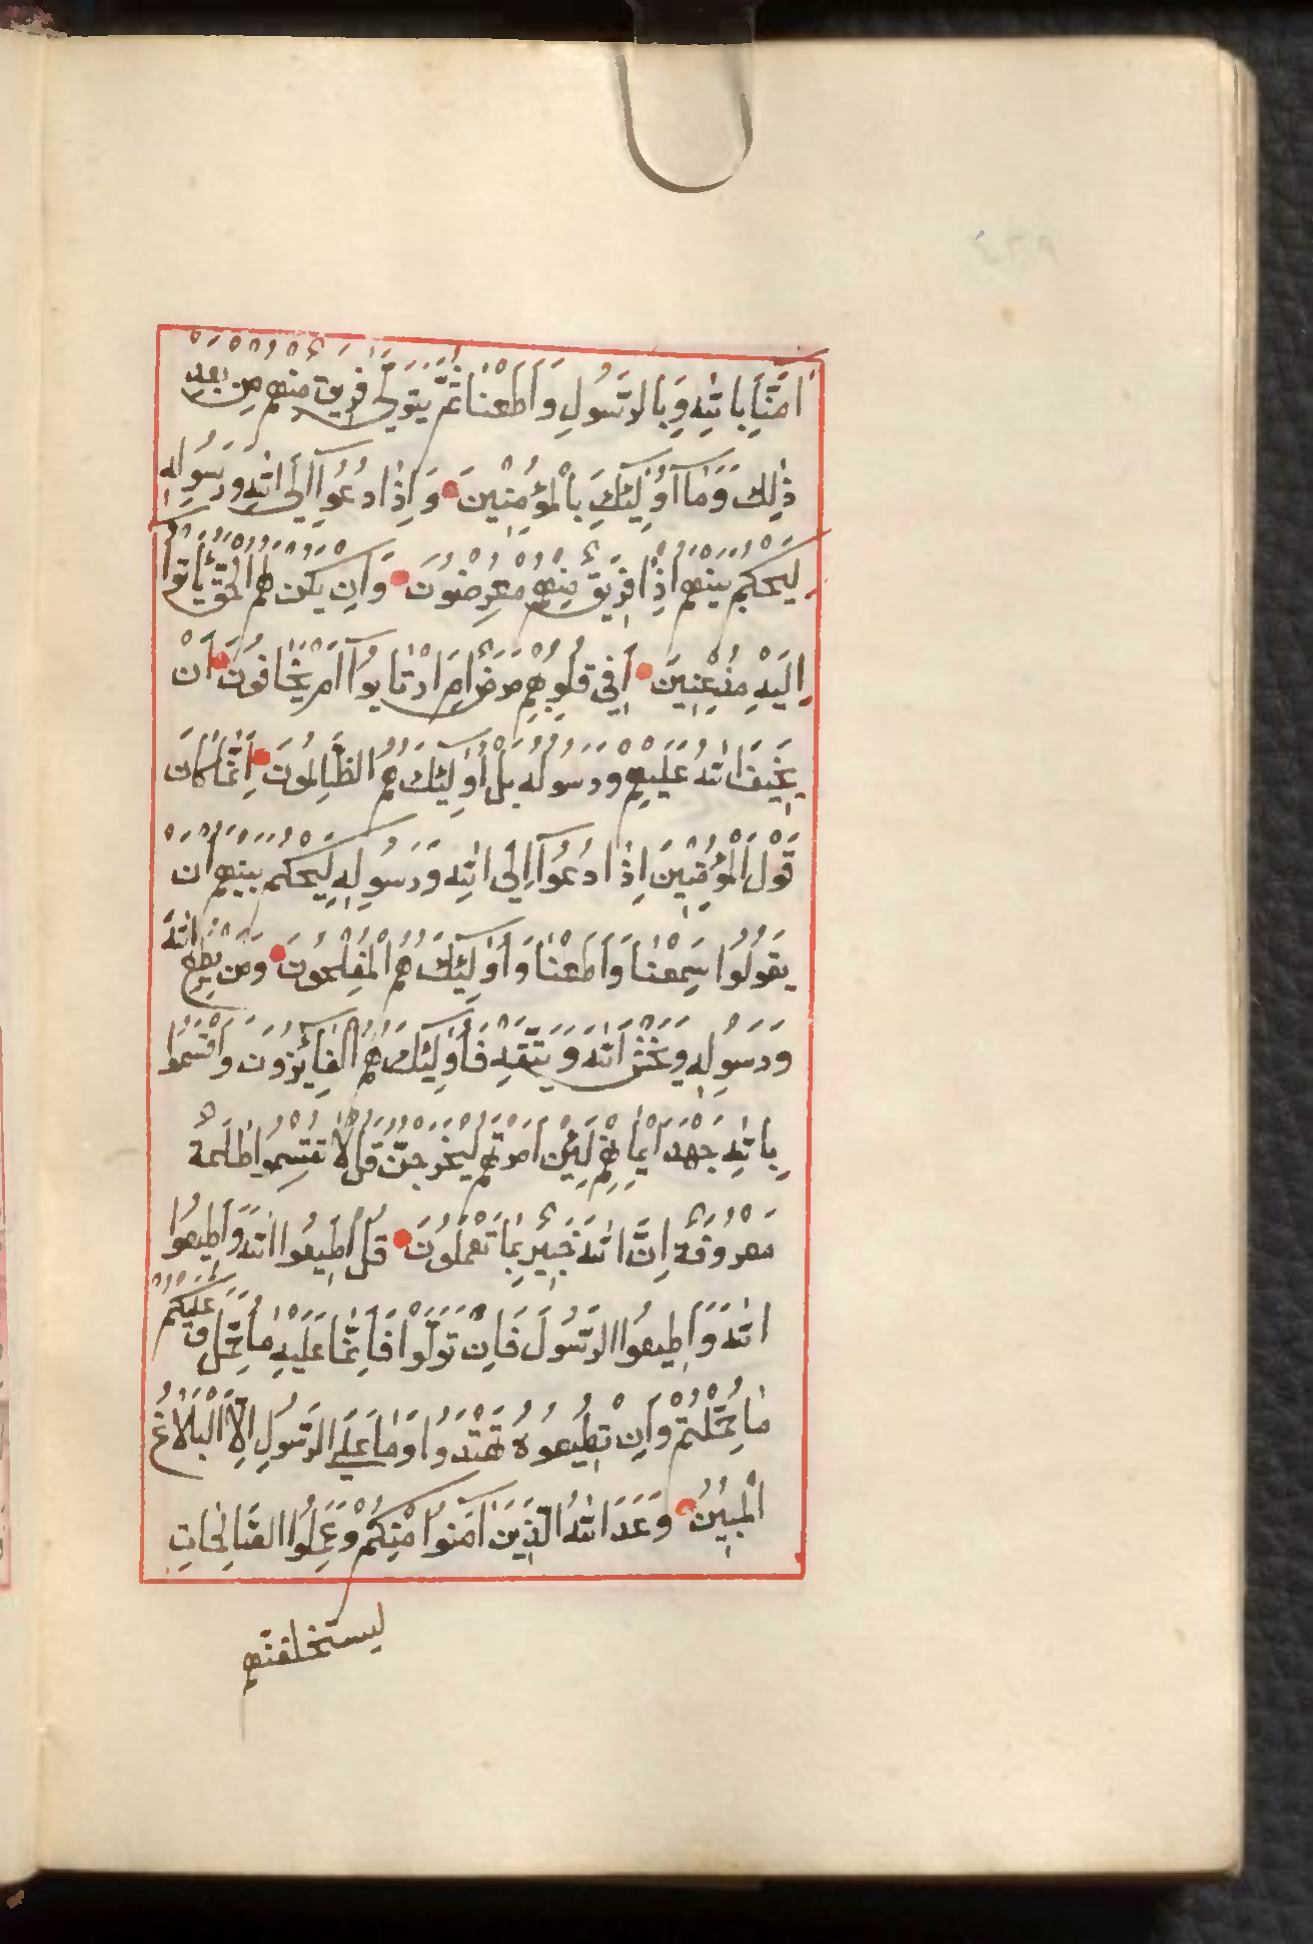 اٰمَنَّا بِاللّٰهِ وَبِالرَّسُولِ وَاَطَعْنَا ثُمَّ يَتَوَلّٰى فَرِيقٌ مِنْهُمْ مِنْ بَعْدِ
ذٰلِكَ وَمَآ اُولٰٓئِكَ بِالْمُؤْمِنِينَ وَاِذَا دُعُوٓا اِلَى اللّٰهِ وَرَسُولِهِ
لِيَحْكُمَ بَيْنَهُمْ اِذَا فَرِيقٌ مِنْهُمْ مُعْرِضُونَ وَاِنْ يَكُنْ لَهُمُ الْحَقُّ يَأْتُوٓا
اِلَيْهِ مُذْعِنِينَ اَفِى قُلُوبِهِمْ مَرَضٌ اَمِ ارْتَابُوٓا اَمْ يَخَافُونَ اَنْ
يَحِيفَ اللّٰهُ عَلَيْهِمْ وَرَسُولُهُ بَلْ اُولٰٓئِكَ هُمُ الظَّالِمُونَ اِنَّمَا كَانَ
قَوْلَ الْمُؤْمِنِينَ اِذَا دُعُوٓا اِلَى اللّٰهِ وَرَسُولِهِ لِيَحْكُمَ بَيْنَهُمْ اَنْ
يَقُولُوا سَمِعْنَا وَاَطَعْنَا وَاُولٰٓئِكَ هُمُ الْمُفْلِحُونَ وَمَنْ يُطِعِ اللّٰهَ
وَرَسُولَهُ وَيَخْشَ اللّٰهَ وَيَتَّقْهِ فَاُولٰٓئِكَ هُمُ الْفَآئِزُونَ وَاَقْسَمُوا
بِاللّٰهِ جَهْدَ اَيْمَانِهِمْ لَئِنْ اَمَرْتَهُمْ لَيَخْرُجُنَّ قُلْ لَا تُقْسِمُوا طَاعَةٌ
مَعْرُوفَةٌ اِنَّ اللّٰهَ خَبِيرٌ بِمَا تَعْمَلُونَ قُلْ اَطِيعُوا اللّٰهَ وَاَطِيعُوا
اللّٰهَ وَاَطِيعُوا الرَّسُولَ فَاِنْ تَوَلَّوْا فَاِنَّمَا عَلَيْهِ مَا حُمِّلَ وَعَلَيْكُمْ
مَا حُمِّلْتُمْ وَاِنْ تُطِيعُوهُ تَهْتَدُوا وَمَا عَلَى الرَّسُولِ اِلَّا الْبَلَاغُ
الْمُبِينُ وَعَدَ اللّٰهُ الَّذِينَ اٰمَنُوا مِنْكُمْ وَعَمِلُوا الصَّالِحَاتِ
ليستخلفنهم